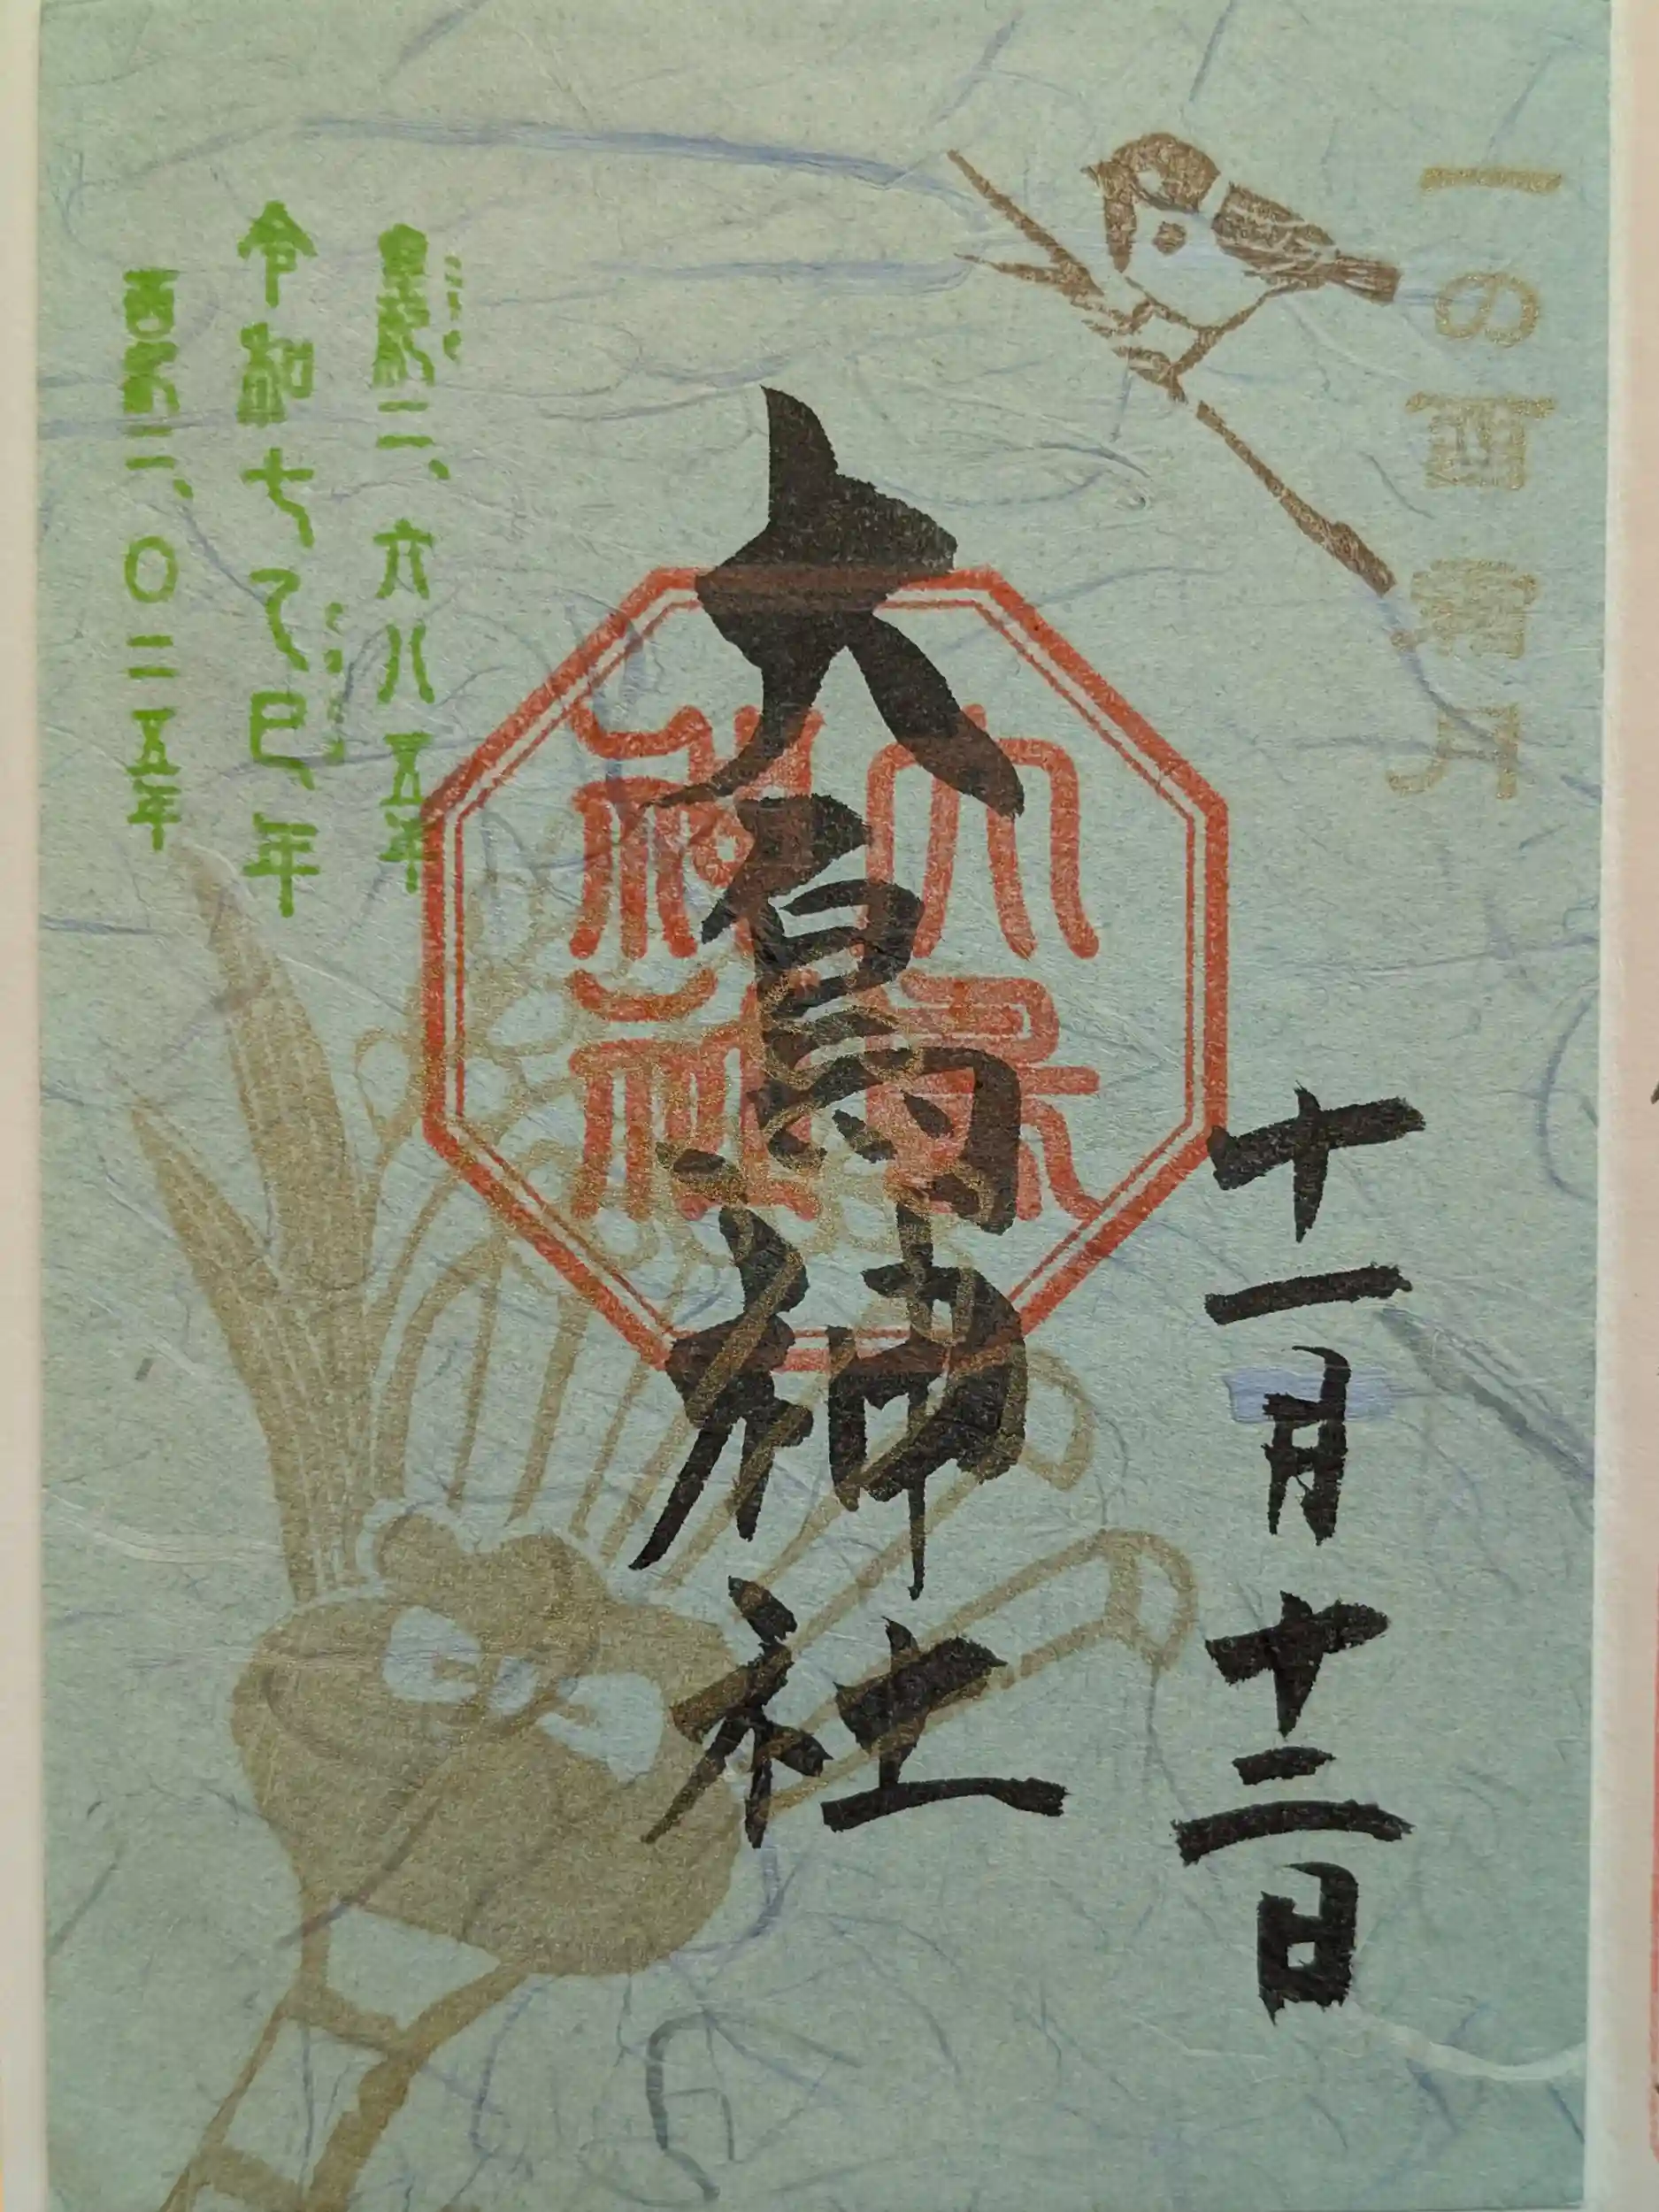 一の酉 霜月
十一月十二日
大鳥神社
大鳥
神社
皇紀二、六八五年
令和七乙巳年
西暦二、〇二五年